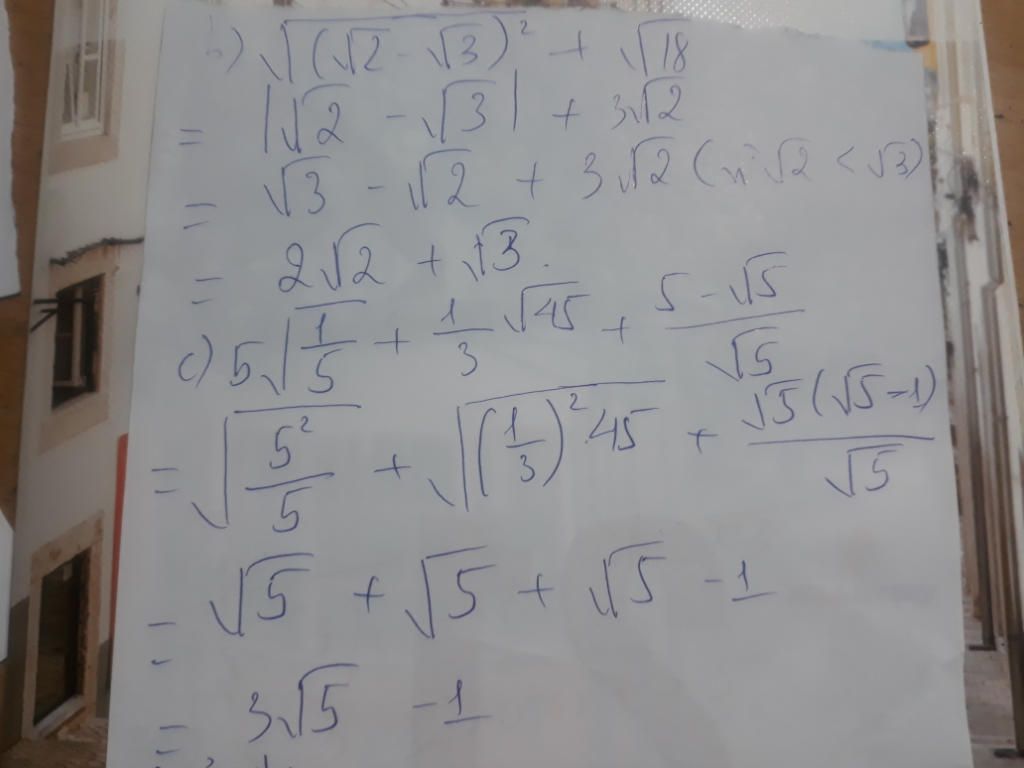 b) √(√2 - √3)² + √18
= |√2 - √3| + 3√2
= √3 - √2 + 3√2 (vì √2 < √3)
= 2√2 + √3.
c) 5√(1/5) + 1/3 √45 + (5 - √5)/√5
= √(5²/5) + √((1/3)².45) + √5(√5 - 1)/√5
= √5 + √5 + √5 - 1
= 3√5 - 1